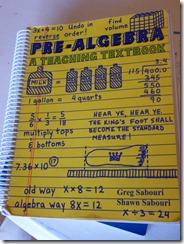 3x+9=10 Undo in
reverse order!
find
volume
PRE-ALGEBRA
A TEACHING TEXTBOOK
MILK =
1 gallon = 4 quarts
7.4
115,000.0
345
550
460
90
5/6 x 1/3 = 5/18
multiply tops
& bottoms
HEAR YE, HEAR YE.
THE KING'S FOOT SHALL
BECOME THE STANDARD
MEASURE!
7.36 x 10
old way x×8=12
algebra way 8x=12
Greg Sabouri
Shawn Sabouri
x÷3=24